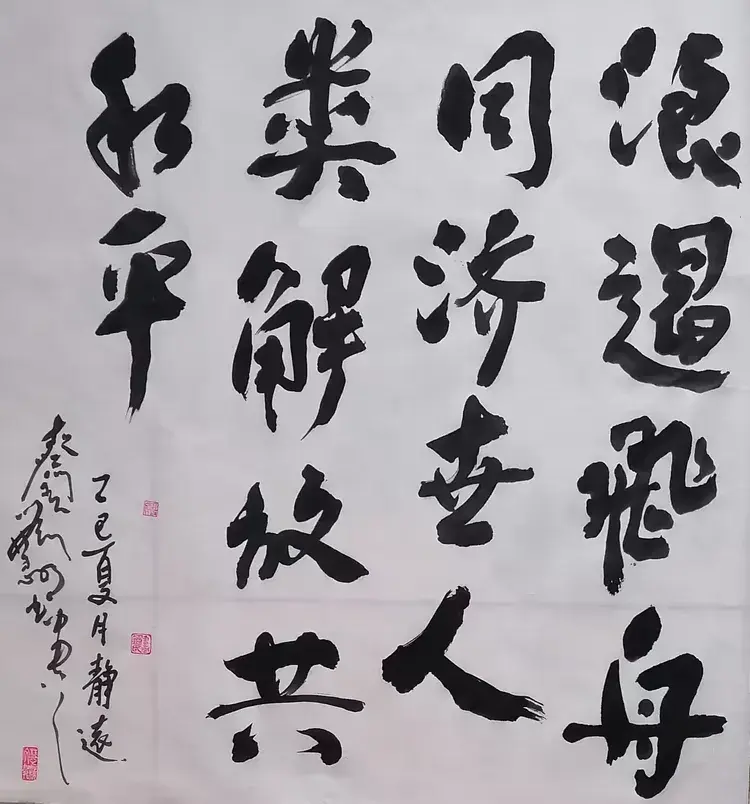 浪遏飛舟
同济世人
类解放共
和平
乙巳夏月静遠